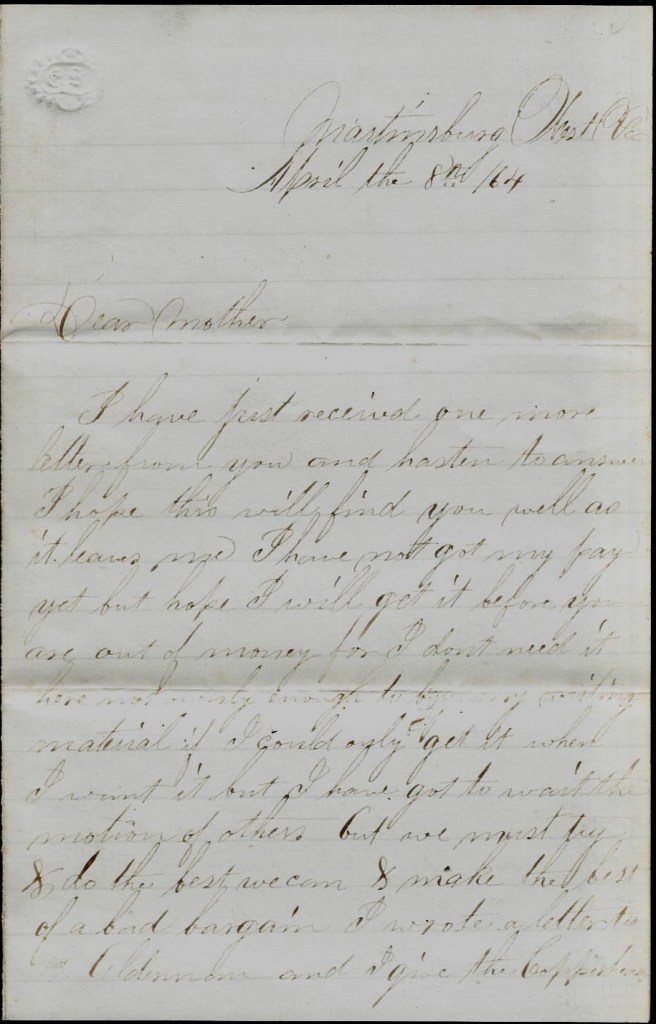 Martinsburg West Va
April the 8th /64
Dear Mother
I have just received one more
letter from you and hasten to answer
I hope this will find you well as
it leaves me I have not got my pay
yet but hope I will get it before you
are out of money for I dont need it
here not only enough to buy my writing
material if I could only get it when
I want it but I have got to wait the
motion of others But we must try
& do the best we can & make the best
of a bad bargain I wrote a letter to
Alderman and I give the